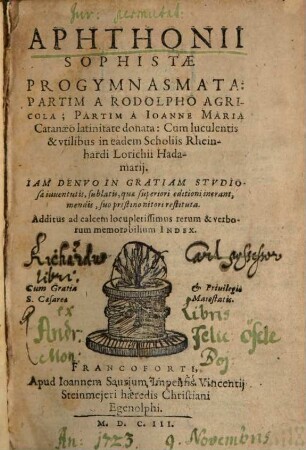 APHTHONII
SOPHISTÆ
PROGYMNASMATA:
PARTIM A RODOLPHO AGRI-
COLA; PARTIM A IOANNE MARIA
Catanæo latinitate donata: Cum luculentis
& vtilibus in eadem Scholiis Rhein-
hardi Lorichii Hada-
marij.
IAM DENVO IN GRATIAM STVDIO-
sæ iuuentutis, sublatis, quæ superiori editioni inerant,
mendis, suo pristino nitori restituta.
Additus ad calcem locupletissimus rerum & verbo-
rum memorabilium INDEX.
possessor
libri.
Cum Gratia & Priuilegio
S. Cæsareæ Maiestatis.
ex libris
Andr. Felic. Öfele
Mon: Boj:
FRANCOFORTI,
Apud Ioannem Saurium, Impensis Vincentij
Steinmejeri hæredis Christiani
Egenolphi.
M. D. C. III.
An: 1723 9. Novembris